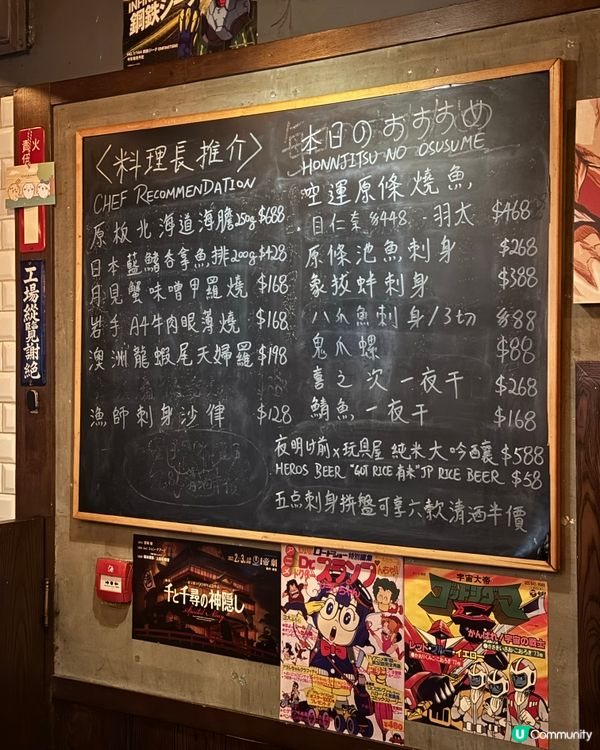 鋼鉄ジーグ
〈料理長推介〉
CHEF RECOMMENDATION
原板北海道海膽250g $688
日本藍鰭吞拿魚排200g $428
月見蟹味噌甲羅燒 $168
岩手A4牛肉眼薄燒 $168
澳洲龍蝦尾天婦羅 $198
漁師刺身沙律 $128
本日のおすすめ
HONNJITSU NO OSUSUME
空運原條燒魚
目仁奈 $448 - 羽太 $468
原條池魚刺身 $268
象拔蚌刺身 $388
八爪魚刺身/3切 $88
鬼爪螺 $88
喜之次一夜干 $268
鯖魚一夜干 $168
夜明け前x玩具屋 純米大吟釀 $588
HEROS BEER "GOT RICE 有米" JP RICE BEER $58
五点刺身拼盤可享六款清酒半價
火
責任
工場縦覧謝絶
千と千尋の神隠し
ロードショー特別編集
Dr.スランプ
¥480
宇宙大帝
ゴッドシグマ
"がんばれ!宇宙の戦士
レッド・ブルー・イエロー
U Community